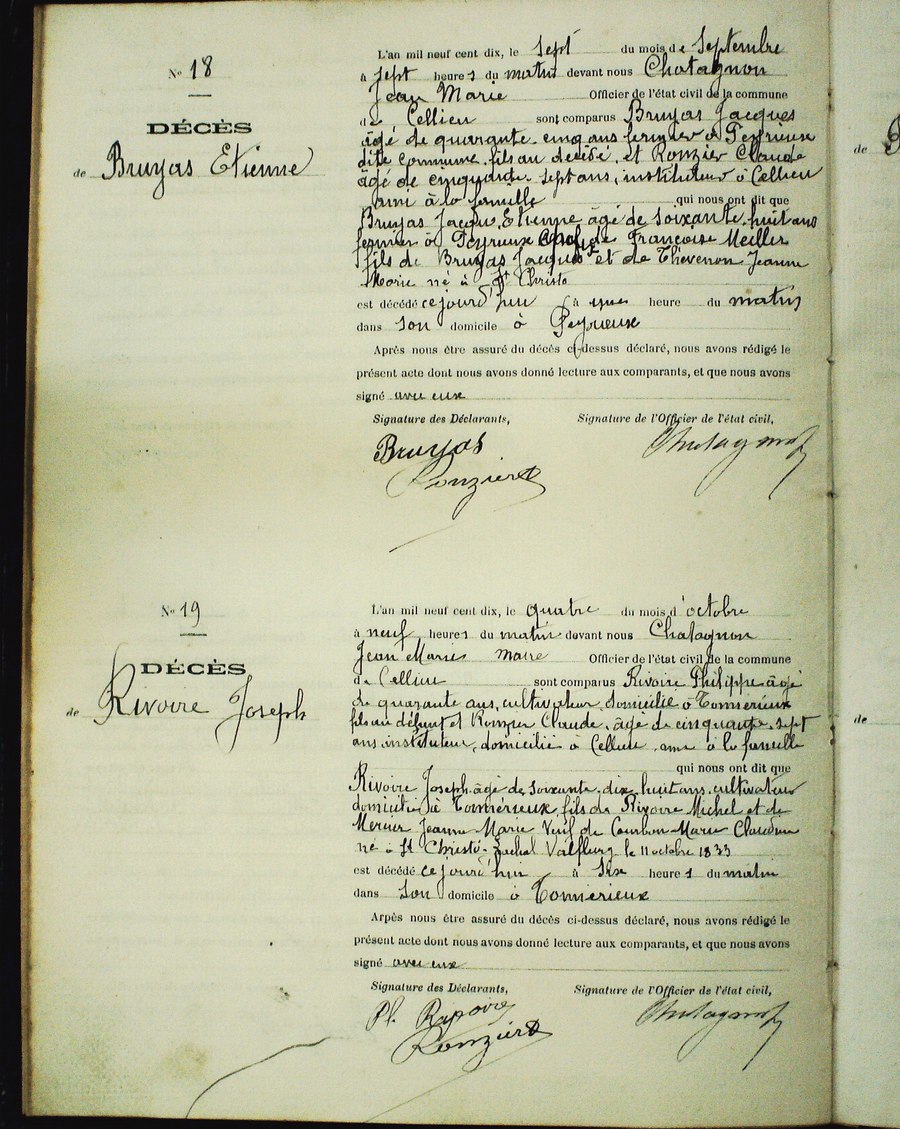 N° 18
DÉCÈS
de Bruyas Etienne
L'an mil neuf cent dix, le sept du mois de Septembre
à sept heures du matin devant nous Chatagnon
Jean Marie Officier de l'état civil de la commune
de Cellieu sont comparus Bruyas Jacques
âgé de quarante cinq ans fermier à Peyrieux
dite commune fils au décédé, et Ronzier Claude
âgé de cinquante sept ans, instituteur à Cellieu
ami à la famille qui nous ont dit que
Bruyas Jacques, Etienne âgé de soixante huit ans
fermier à Peyrieux de Françoise Meiller
fils de Bruyas Jacques et de Thevenon Jeanne
Marie né à St Christo
est décédé ce jourd'hui à une heure du matin
dans son domicile à Peyrieux
Après nous être assuré du décès ci-dessus déclaré, nous avons rédigé le
présent acte dont nous avons donné lecture aux comparants, et que nous avons
signé avec eux
Signature des Déclarants, Signature de l'Officier de l'état civil,
Bruyas Chatagnon
Ronzier
N° 19
DÉCÈS
de Rivoire Joseph
L'an mil neuf cent dix, le quatre du mois d'octobre
à neuf heures du matin devant nous Chatagnon
Jean Marie maire Officier de l'état civil de la commune
de Cellieu sont comparus Rivoire Philippe âgé
de quarante ans, cultivateur domicilié à Tomérieux
fils au défunt et Ronzier Claude, âgé de cinquante sept
ans instituteur, domicilié à Cellieu ami à la famille
qui nous ont dit que
Rivoire Joseph âgé de soixante dix huit ans cultivateur
domicilié à Tomérieux, fils de Rivoire Michel et de
Mercier Jeanne Marie Veuf de Courbon Marie Claudine
né à St Christo Valfleury le 11 octobre 1833
est décédé ce jourd'hui à six heures du matin
dans son domicile à Tomérieux
Arpès nous être assuré du décès ci-dessus déclaré, nous avons rédigé le
présent acte dont nous avons donné lecture aux comparants, et que nous avons
signé avec eux
Signature des Déclarants, Signature de l'Officier de l'état civil,
Ph. Rivoire Chatagnon
Ronzier
de
de